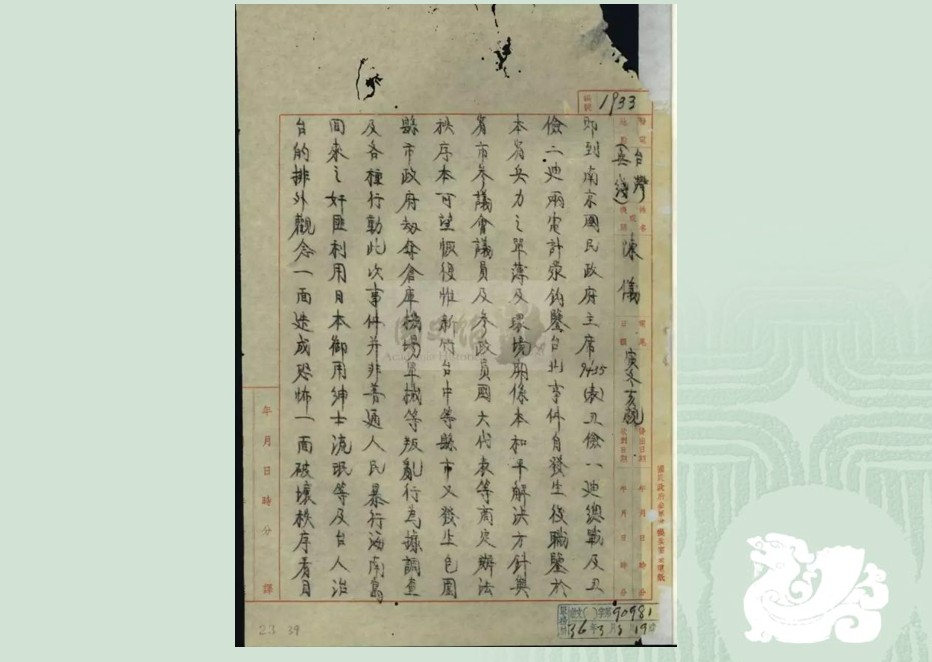 1933
台灣
陳儀
寅冬亥親
即到南京國民政府主席9435丑儉一廸總戰及丑
儉二廸兩電計蒙鈞鑒台北事件自發生後職鑒於
本省兵力之單薄及環境關係本和平解決方針與
省市參議會議員及參政員國大代表等商定辦法
秩序本可望恢復惟新竹台中等縣市又發生包圍
縣市政府劫奪倉庫機場軍械等叛亂行為據調查
及各種行動此次事件并非普通人民暴行海南島
回來之奸匪利用日本御用紳士流氓等及台人治
台的排外觀念一面造成恐怖一面破壞秩序看月
年月日時分譯
90981
23 39